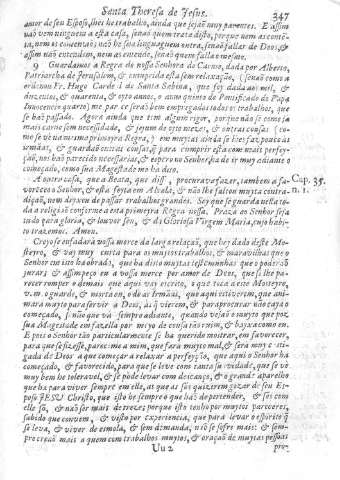 Santa Theresa de Jesus.
347
amor de seu Esposo, lhes he trabalho, ainda que sejaõ muy parentes. E assim
vaõ vem ninguem a esta casa, senaõ quem trata disto, porque nem as contẽ-
ta, nem os contentaõ: naõ he sua linguagem outra, senaõ fallar de Deos, &
assim naõ entendem, nem as entende, senaõ quem falla o mesmo.
9 Guardamos a Regra de nossa Senhora do Carmo, dada por Alberto,
Patriarcha de Jerusalem, & cumprida esta sem relaxaçaõ, (senaõ como a
ordenou Fr. Hugo Cardeal de Santa Sabina, que foy dada aos mil, &
duzentos, & quarenta, & oyto annos, o anno quinto do Pontificado do Papa
Innocencio quarto) me parece seraõ bem empregados todos os trabalhos, que
se haõ passado. Agora ainda que tem algum rigor, porque naõ se come já
mais carne sem necessidade, & jejum de oyto mezes, & outras cousas (co-
mo se vè na mesma primeyra Regra,) em muytas ainda se lhes faz pouco às
irmãas, & guardaõ outras cousas, que para cumprir esta com mais perfey-
çaõ, nos haõ parecido necessarias, & espero no Senhor ha de ir muy adiante o
começado, como sua Magestade mo ha dito.
A outra casa, que a Beata, que disse, procurava fazer, tambem a fa-
voreceo o Senhor, & está feyta em Alcalá, & naõ lhe faltou muyta contra-
diçaõ, nem deyxou de passar trabalhos grandes. Sey que se guarda nella to-
da a religiaõ conforme a esta primeyra Regra nossa. Praza ao Senhor seja
tudo para gloria, & louvor seu, & da Gloriosa Virgem Maria, cujo habi-
to trazemos. Amen.
Cap. 35.
n. 1.
Creyo se enfadarà vossa merce da larga relaçaõ, que hey dado deste Mos-
teyro, & vay muy curta para os muytos trabalhos, & maravilhas que o
Senhor nisto ha obrado, que ha disto muytas testemunhas que o poderáõ
jurar; & assim peço eu a vossa merce por amor de Deos, que se lhe pa-
recer romper o demais que aqui vay escrito, o que toca a este Mosteyro,
v. m. o guarde, & morta eu, o dè às Irmãas, que aqui estiverem, que ani-
marà muyto para servir a Deos, as q̃ vierem, & para procurar naõ caya o
começado, senaõ que và sempre adiante, quando vejaõ o muyto que poz
sua Magestade em fazella por meyo de cousa taõ ruim, & bayxa como eu.
E pois o Senhor taõ particularmente se ha querido mostrar, em favorecer,
para que se fizesse, pareceme a mim, que farà muyto mal, & serà muy casti-
gada de Deos a que começar a relaxar a perfeyçaõ, que aqui o Senhor ha
começado, & favorecido, para que se leve com tanta suavidade, que se vè
muy bem he toleravel, & se póde levar com descanço, & o grande aparelho
que ha para viver sempre em elle, as que a sós quizerem gozar de seu Es-
poso JESU Christo, que isto he sempre o que haõ de pertender, & sós com
elle só, & naõ ser mais de treze; porque isto tenho por muytos pareceres,
sabido que convem, & visto por experiencia, que para levar o espirito q̃
se leva, & viver de esmola, & sem demanda, naõ se sofre mais: & sem-
pre creaõ mais a quem com trabalhos muytos, & oraçaõ de muytas pessoas
Uu 2
pro-